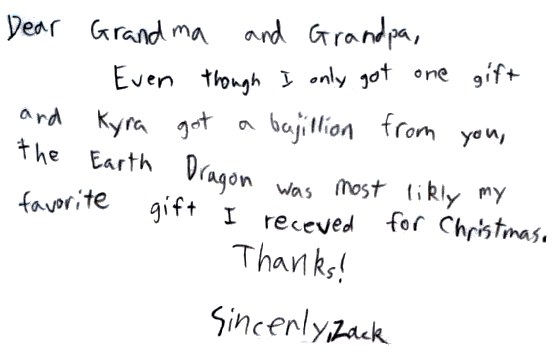 Dear Grandma and Grandpa,
Even though I only got one gift
and Kyra got a bajillion from you,
the Earth Dragon was most likly my
favorite gift I receved for Christmas.
Thanks!
Sincerly, Zack